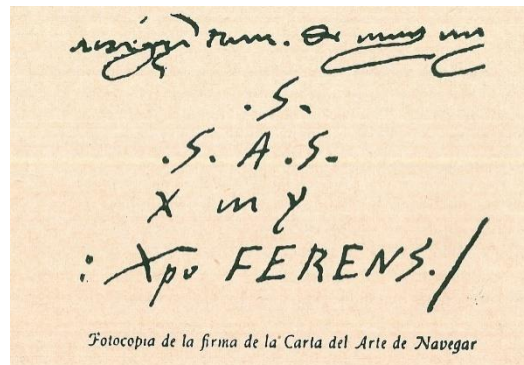 .S.
.S. A .S.
X m y
: Xpo FERENS./
Fotocopia de la firma de la Carta del Arte de Navegar